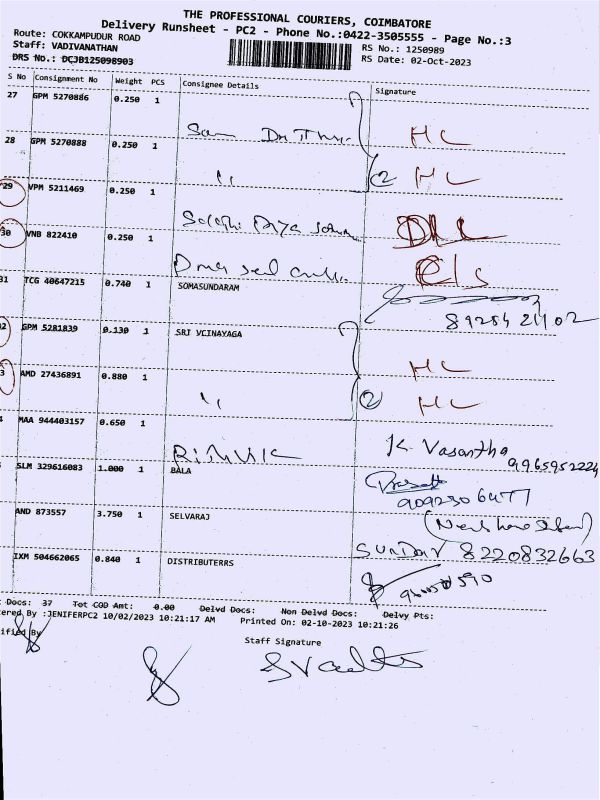 THE PROFESSIONAL COURIERS, COIMBATORE
Delivery Runsheet - PC2 - Phone No.:0422-3505555 - Page No.:3
Route: COKKAMPUDUR ROAD
Staff: VADIVANATHAN RS No.: 1250989
DRS No.: DCJB125098903 RS Date: 02-Oct-2023
S No Consignment No Weight PCS Consignee Details Signature
27 GPM 5270886 0.250 1
HC
28 GPM 5270888 0.250 1
" 2 HC
29 VPM 5211469 0.250 1
30 VNB 822410 0.250 1
31 TCG 40647215 0.740 1 SOMASUNDARAM
8928421102
2 GPM 5281839 0.130 1 SRI VCINAYAGA
HC
3 AMD 27436891 0.880 1
" 2 HC
MAA 944403157 0.650 1
K. Vasantha
9965952224
SLM 329616083 1.000 1 BALA
9092506477
AND 873557 3.750 1 SELVARAJ
SUNDAR 8220832663
IXM 504662065 0.840 1 DISTRIBUTERRS
Docs: 37 Tot COD Amt: 0.00 Delvd Docs: Non Delvd Docs: Delvy Pts:
ered By :JENIFERPC2 10/02/2023 10:21:17 AM Printed On: 02-10-2023 10:21:26
ified By
Staff Signature